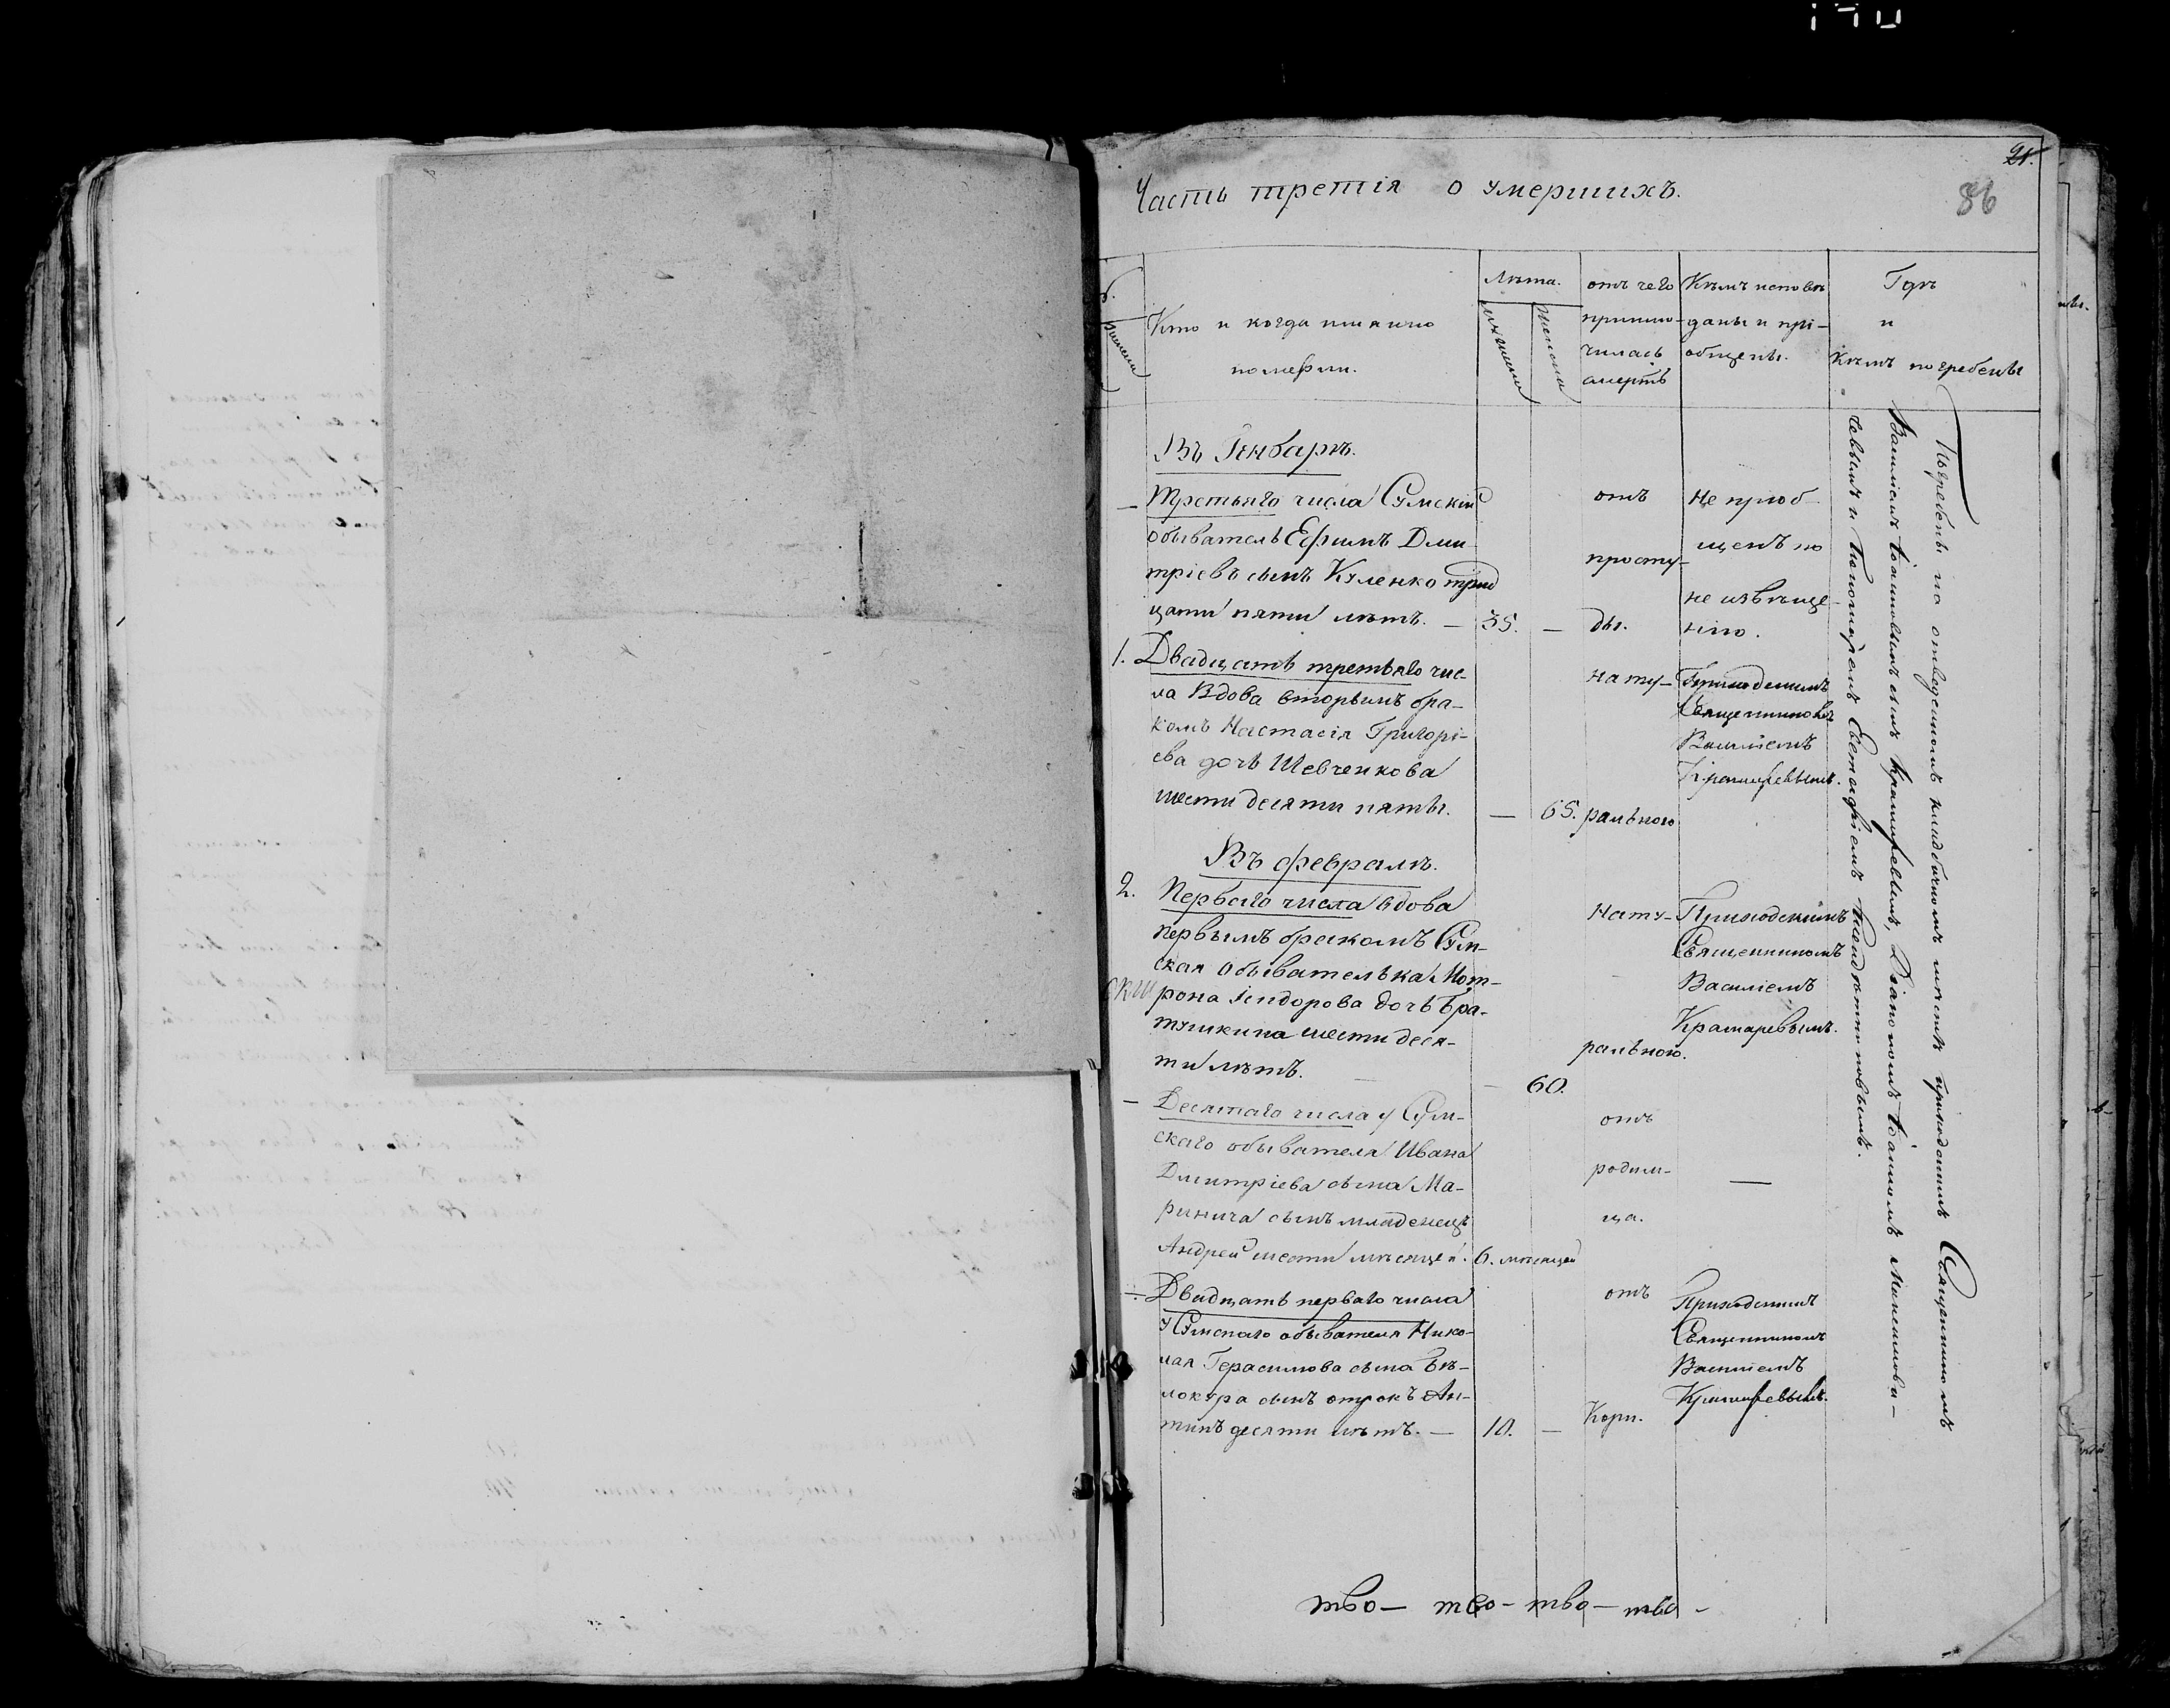 21.
86
Часть третія о умершихъ.
Кто и когда имянно
померли.
Лѣта.
отъ чего
приклю-
чилась
смерть
Кѣмъ исповѣ
даны и прі-
общены.
Гдѣ
и
Кѣмъ погребены
Въ Генварѣ.
Третьяго числа Сумскій
обыватель Ефимъ Дми
тріевъ сынъ Куленко трид
цати пяти лѣтъ. — 35. —
отъ
просту-
ды.
Не пріоб
щенъ по
не извѣще-
нію.
1. Двадцать третьяго чис-
ла Вдова вторымъ бра-
комъ Настасія Григорі-
ева дочь Шевченкова
шести десяти пяты. — 65.
нату-
ральною
Приходскимъ
Священникомъ
Василіемъ
Крамаревымъ.
Въ февралѣ.
2. Перваго числа вдова
первымъ бракомъ Сум-
ская обывателька Мот-
рона Ісидорова дочь Бра-
тушкина шести деся-
ти лѣтъ. — 60.
Нату-
ральною.
Приходскимъ
Священникомъ
Василіемъ
Крамаревымъ.
— Десятаго числа у Сум-
скаго обывателя Ивана
Дмитріева сына Ма-
ринича сынъ младенецъ
Андрей шести мѣсяцей. 6. мѣсяцей
отъ
родим-
ца.
—
— Двадцать перваго числа
у Сумскаго обывателя Нико-
лая Герасимова сына Бѣ-
локура сынъ отрокъ Ан-
типъ десяти лѣтъ. — 10. —
отъ
Кори.
Приходскимъ
Священникомъ
Василіемъ
Крамаревымъ.
Погребены на отведенномъ кладбичномъ мѣстѣ приходскимъ Священникомъ
Василіемъ Іоанновымъ Крамаревымъ, Діакономъ Іоанномъ
и Пономаремъ Евстафіемъ
тво — тво — тво — тво —